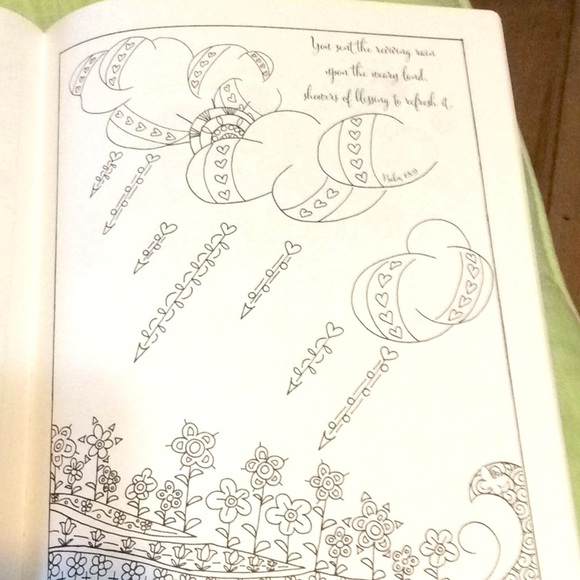 You sent the reviving rain
upon the weary land,
showers of blessing to refresh it.
Psalm 68:9